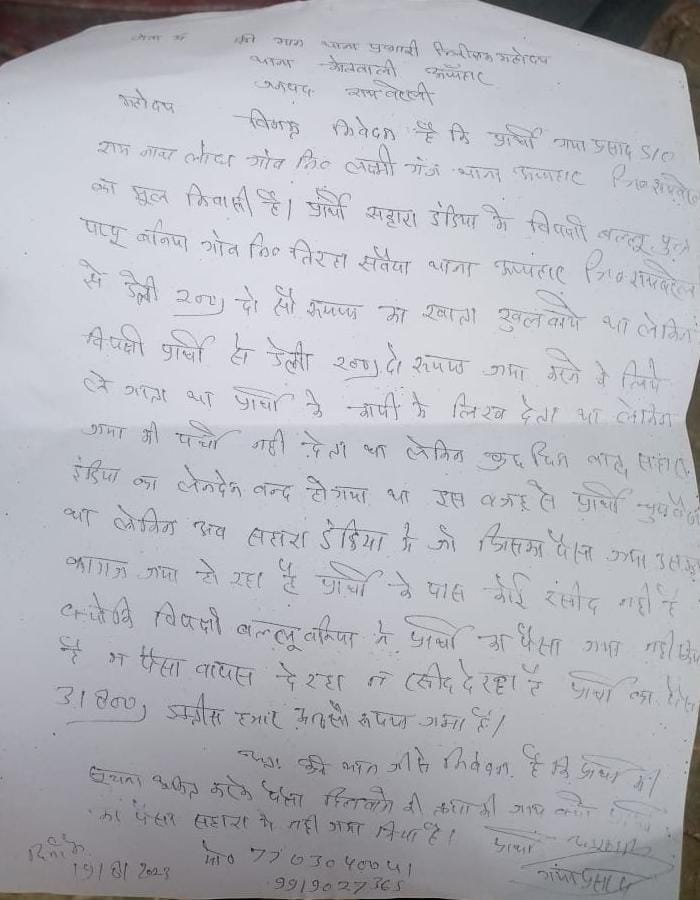 सेवा में
श्री मान थाना प्रभारी निरीक्षक महोदय
थाना कोतवाली ऊँचाहार
जनपद रायबरेली
महोदय
विनम्र निवेदन है कि प्रार्थी गया प्रसाद S/O
राम नाथ लोध गाँव नि० लक्ष्मी गंज थाना ऊंचाहार जि० रायबरेली
का मूल निवासी है। प्रार्थी सहारा इंडिया के विपक्षी बल्लू पुत्र
पप्पू बनिया गाँव नि० सवैया थाना ऊंचाहार जि० रायबरेली
से डेली 200) दो सौ रूपया का खाता खुलवाये था लेकिन
विपक्षी प्रार्थी से डेली 200) दो रूपया जमा करने के लिये
ले जाता था प्रार्थी के कापी के लिख देता था लेकिन
जमा की पर्ची नही देता था लेकिन कुछ दिन बाद सहारा
इंडिया का लेनदेन बन्द हो गया था इस वजह से प्रार्थी चुप
था लेकिन अब सहारा इंडिया मे जो जिसका पैसा जमा उसका
कागज जमा हो रहा है प्रार्थी के पास कोई रसीद नही है
क्योकि विपक्षी बल्लू बनिया ने प्रार्थी का पैसा जमा नही किया
है न पैसा वापस दे रहा न रसीद दे रहा है प्रार्थी का पैसा
31800) हजार आठसौ रूपया जमा है।
अतः श्री मान जी से निवेदन है कि प्रार्थी की
सूचना अंकित करके पैसा दिलवाने की कृपा की जाय
का पैसा सहारा के नही जमा किया है।
प्रार्थी
दिनांक
मो० 7703040041
गया प्रसाद
9919027365